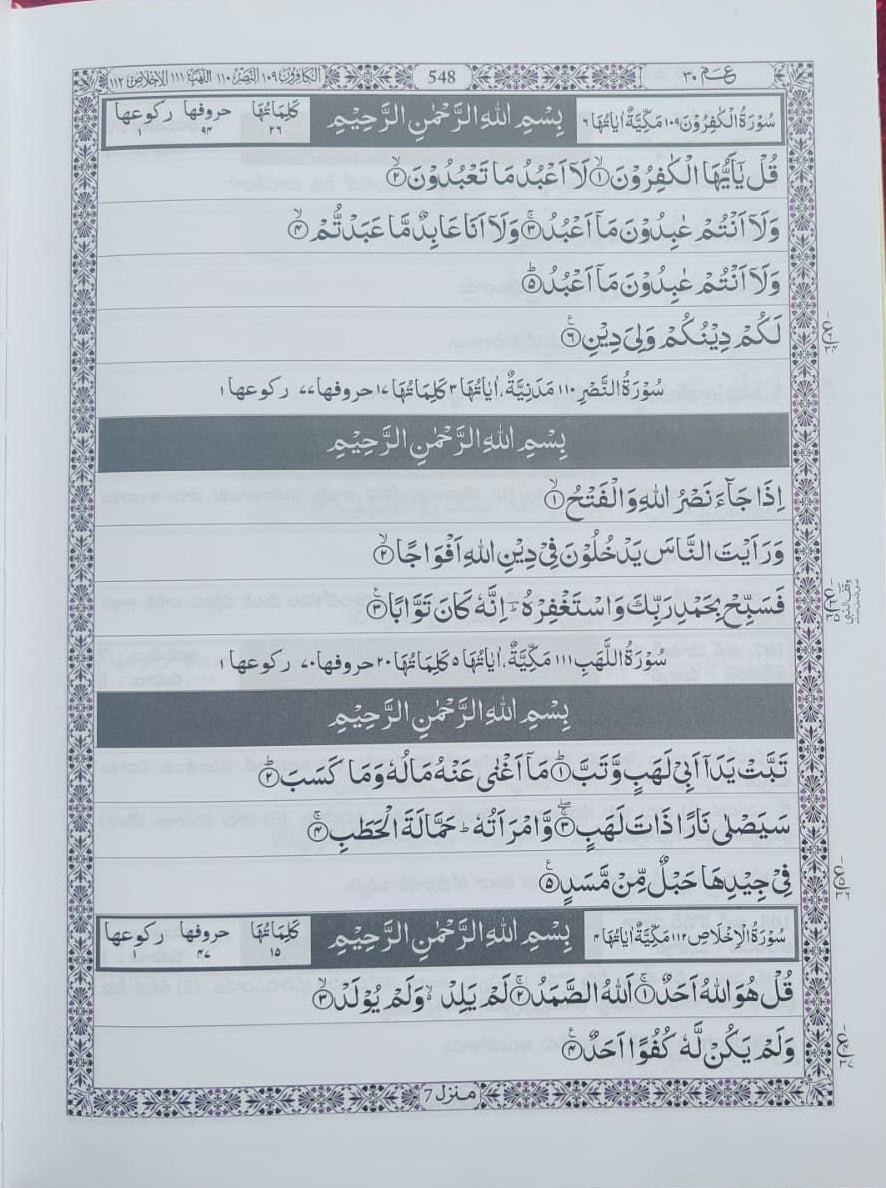 عـم ٣٠ 548 الكافرون ١٠٩ النصر ١١٠ اللهب ١١١ الإخلاص ١١٢
سُوْرَةُ الْكٰفِرُوْنَ ١٠٩ مَكِّيَّةٌ اٰيَاتُهَا ٦ بِسْمِ اللهِ الرَّحْمٰنِ الرَّحِيْمِ كَلِمَاتُهَا ٢٦ حروفها ٩٤ ركوعها ١
قُلْ يٰٓاَيُّهَا الْكٰفِرُوْنَ ۙ﴿١﴾ لَآ اَعْبُدُ مَا تَعْبُدُوْنَ ۙ﴿٢﴾
وَلَآ اَنْتُمْ عٰبِدُوْنَ مَآ اَعْبُدُ ۚ﴿٣﴾ وَلَآ اَنَا عَابِدٌ مَّا عَبَدْتُّمْ ۙ﴿٤﴾
وَلَآ اَنْتُمْ عٰبِدُوْنَ مَآ اَعْبُدُ ؕ﴿٥﴾
لَكُمْ دِيْنُكُمْ وَلِيَ دِيْنِ ﴿٦﴾
سُوْرَةُ النَّصْرِ ١١٠ مَدَنِيَّةٌ، اٰيَاتُهَا ٣ كَلِمَاتُهَا ١٧ حروفها ٧٧ ركوعها ١
بِسْمِ اللهِ الرَّحْمٰنِ الرَّحِيْمِ
اِذَا جَآءَ نَصْرُ اللهِ وَالْفَتْحُ ۙ﴿١﴾
وَرَاَيْتَ النَّاسَ يَدْخُلُوْنَ فِيْ دِيْنِ اللهِ اَفْوَاجًا ۙ﴿٢﴾
فَسَبِّحْ بِحَمْدِ رَبِّكَ وَاسْتَغْفِرْهُ ؔؕ اِنَّهٗ كَانَ تَوَّابًا ﴿٣﴾
سُوْرَةُ اللَّهَبِ ١١١ مَكِّيَّةٌ، اٰيَاتُهَا ٥ كَلِمَاتُهَا ٢٠ حروفها ٧٠ ركوعها ١
بِسْمِ اللهِ الرَّحْمٰنِ الرَّحِيْمِ
تَبَّتْ يَدَآ اَبِيْ لَهَبٍ وَّتَبَّ ؕ﴿١﴾ مَآ اَغْنٰى عَنْهُ مَالُهٗ وَمَا كَسَبَ ؕ﴿٢﴾
سَيَصْلٰى نَارًا ذَاتَ لَهَبٍ ۚۖ﴿٣﴾ وَّامْرَاَتُهٗ ؕ حَمَّالَةَ الْحَطَبِ ۚ﴿٤﴾
فِيْ جِيْدِهَا حَبْلٌ مِّنْ مَّسَدٍ ﴿٥﴾
سُوْرَةُ الْاِخْلَاصِ ١١٢ مَكِّيَّةٌ اٰيَاتُهَا ٤ بِسْمِ اللهِ الرَّحْمٰنِ الرَّحِيْمِ كَلِمَاتُهَا ١٥ حروفها ٤٧ ركوعها ١
قُلْ هُوَ اللهُ اَحَدٌ ۚ﴿١﴾ اَللهُ الصَّمَدُ ۚ﴿٢﴾ لَمْ يَلِدْ ۙ وَلَمْ يُوْلَدْ ۙ﴿٣﴾
وَلَمْ يَكُنْ لَّهٗ كُفُوًا اَحَدٌ ﴿٤﴾
منزل 7